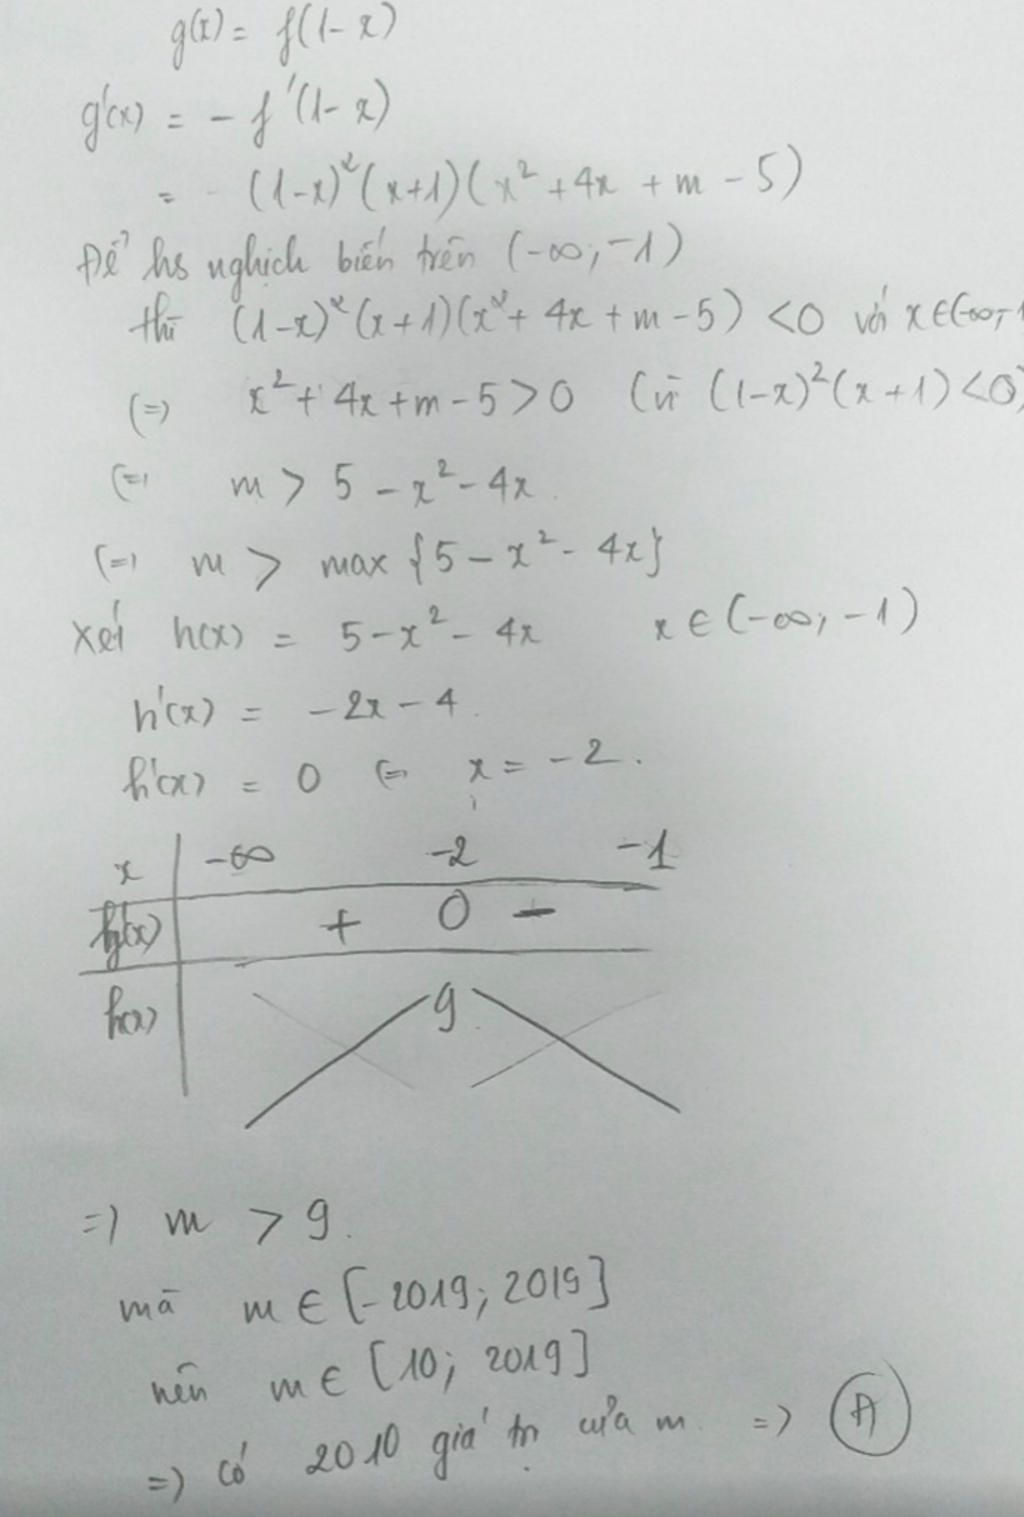 g(x) = f(1-x)
g'(x) = - f'(1-x)
= - (1-x)²(x+1)(x²+4x+m-5)
Để hs nghịch biến trên (-∞; -1)
thì (1-x)²(x+1)(x²+4x+m-5) <0 với x∈(-∞;-1
(=) x²+4x+m-5>0 (vì (1-x)²(x+1)<0)
(=) m > 5-x²-4x.
(=) m > max {5-x²-4x}
Xét h(x) = 5-x²-4x x∈(-∞; -1)
h'(x) = -2x-4.
h'(x) = 0 (=) x = -2.
x -∞ -2 -1
h'(x) + 0 -
h(x) 9
=) m > 9.
mà m ∈ [-2019; 2019]
nên m ∈ [10; 2019]
=) có 2010 giá trị của m. =) A